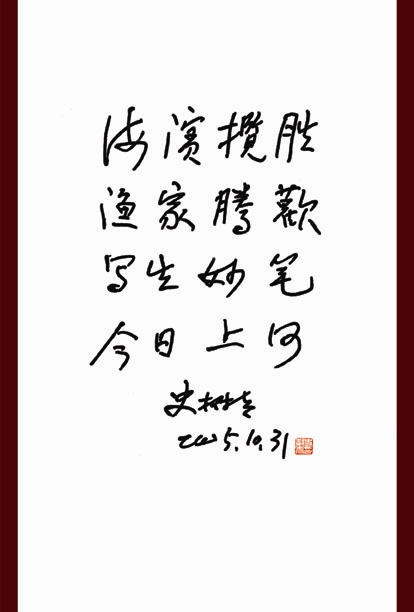 海滨揽胜
渔家腾歡
写生妙笔
今日上河
史树青
2005.10.31